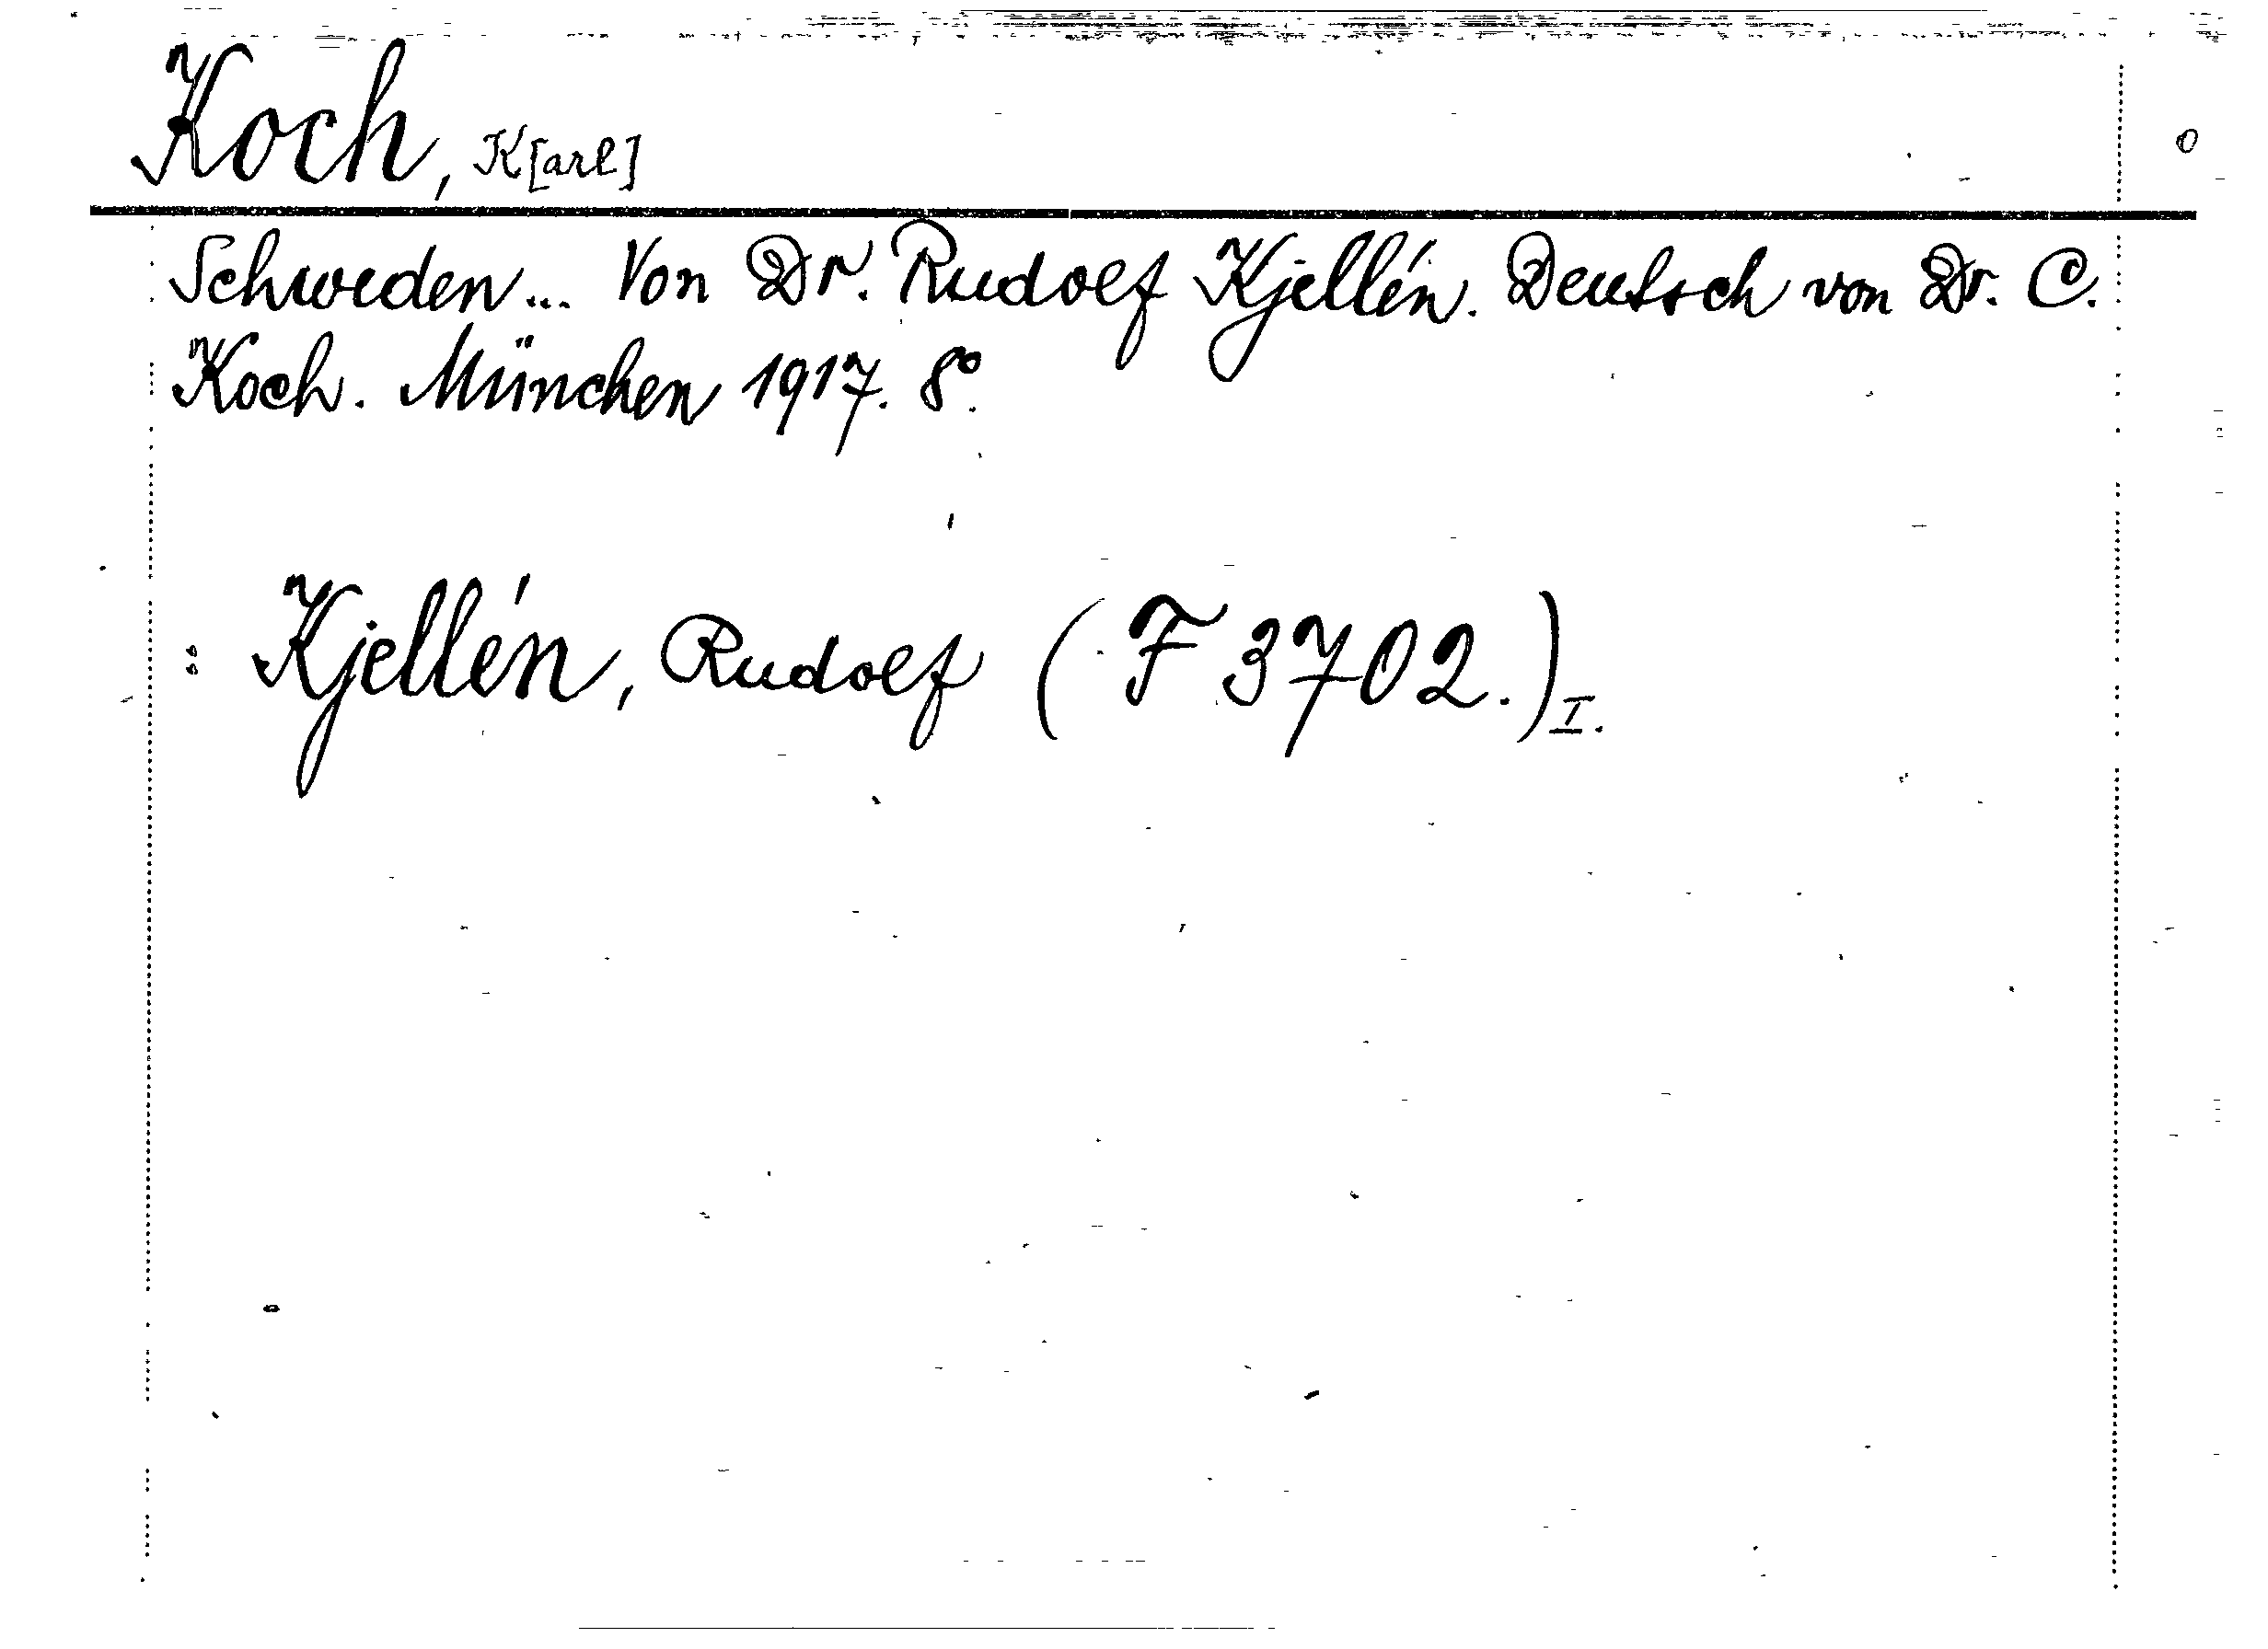 Koch, K[arl]
0
Schweden... Von Dr. Rudolf Kjellén. Deutsch von Dr. C.
Koch. München 1917. 8°.
: Kjellén, Rudolf (F 3702.) I.